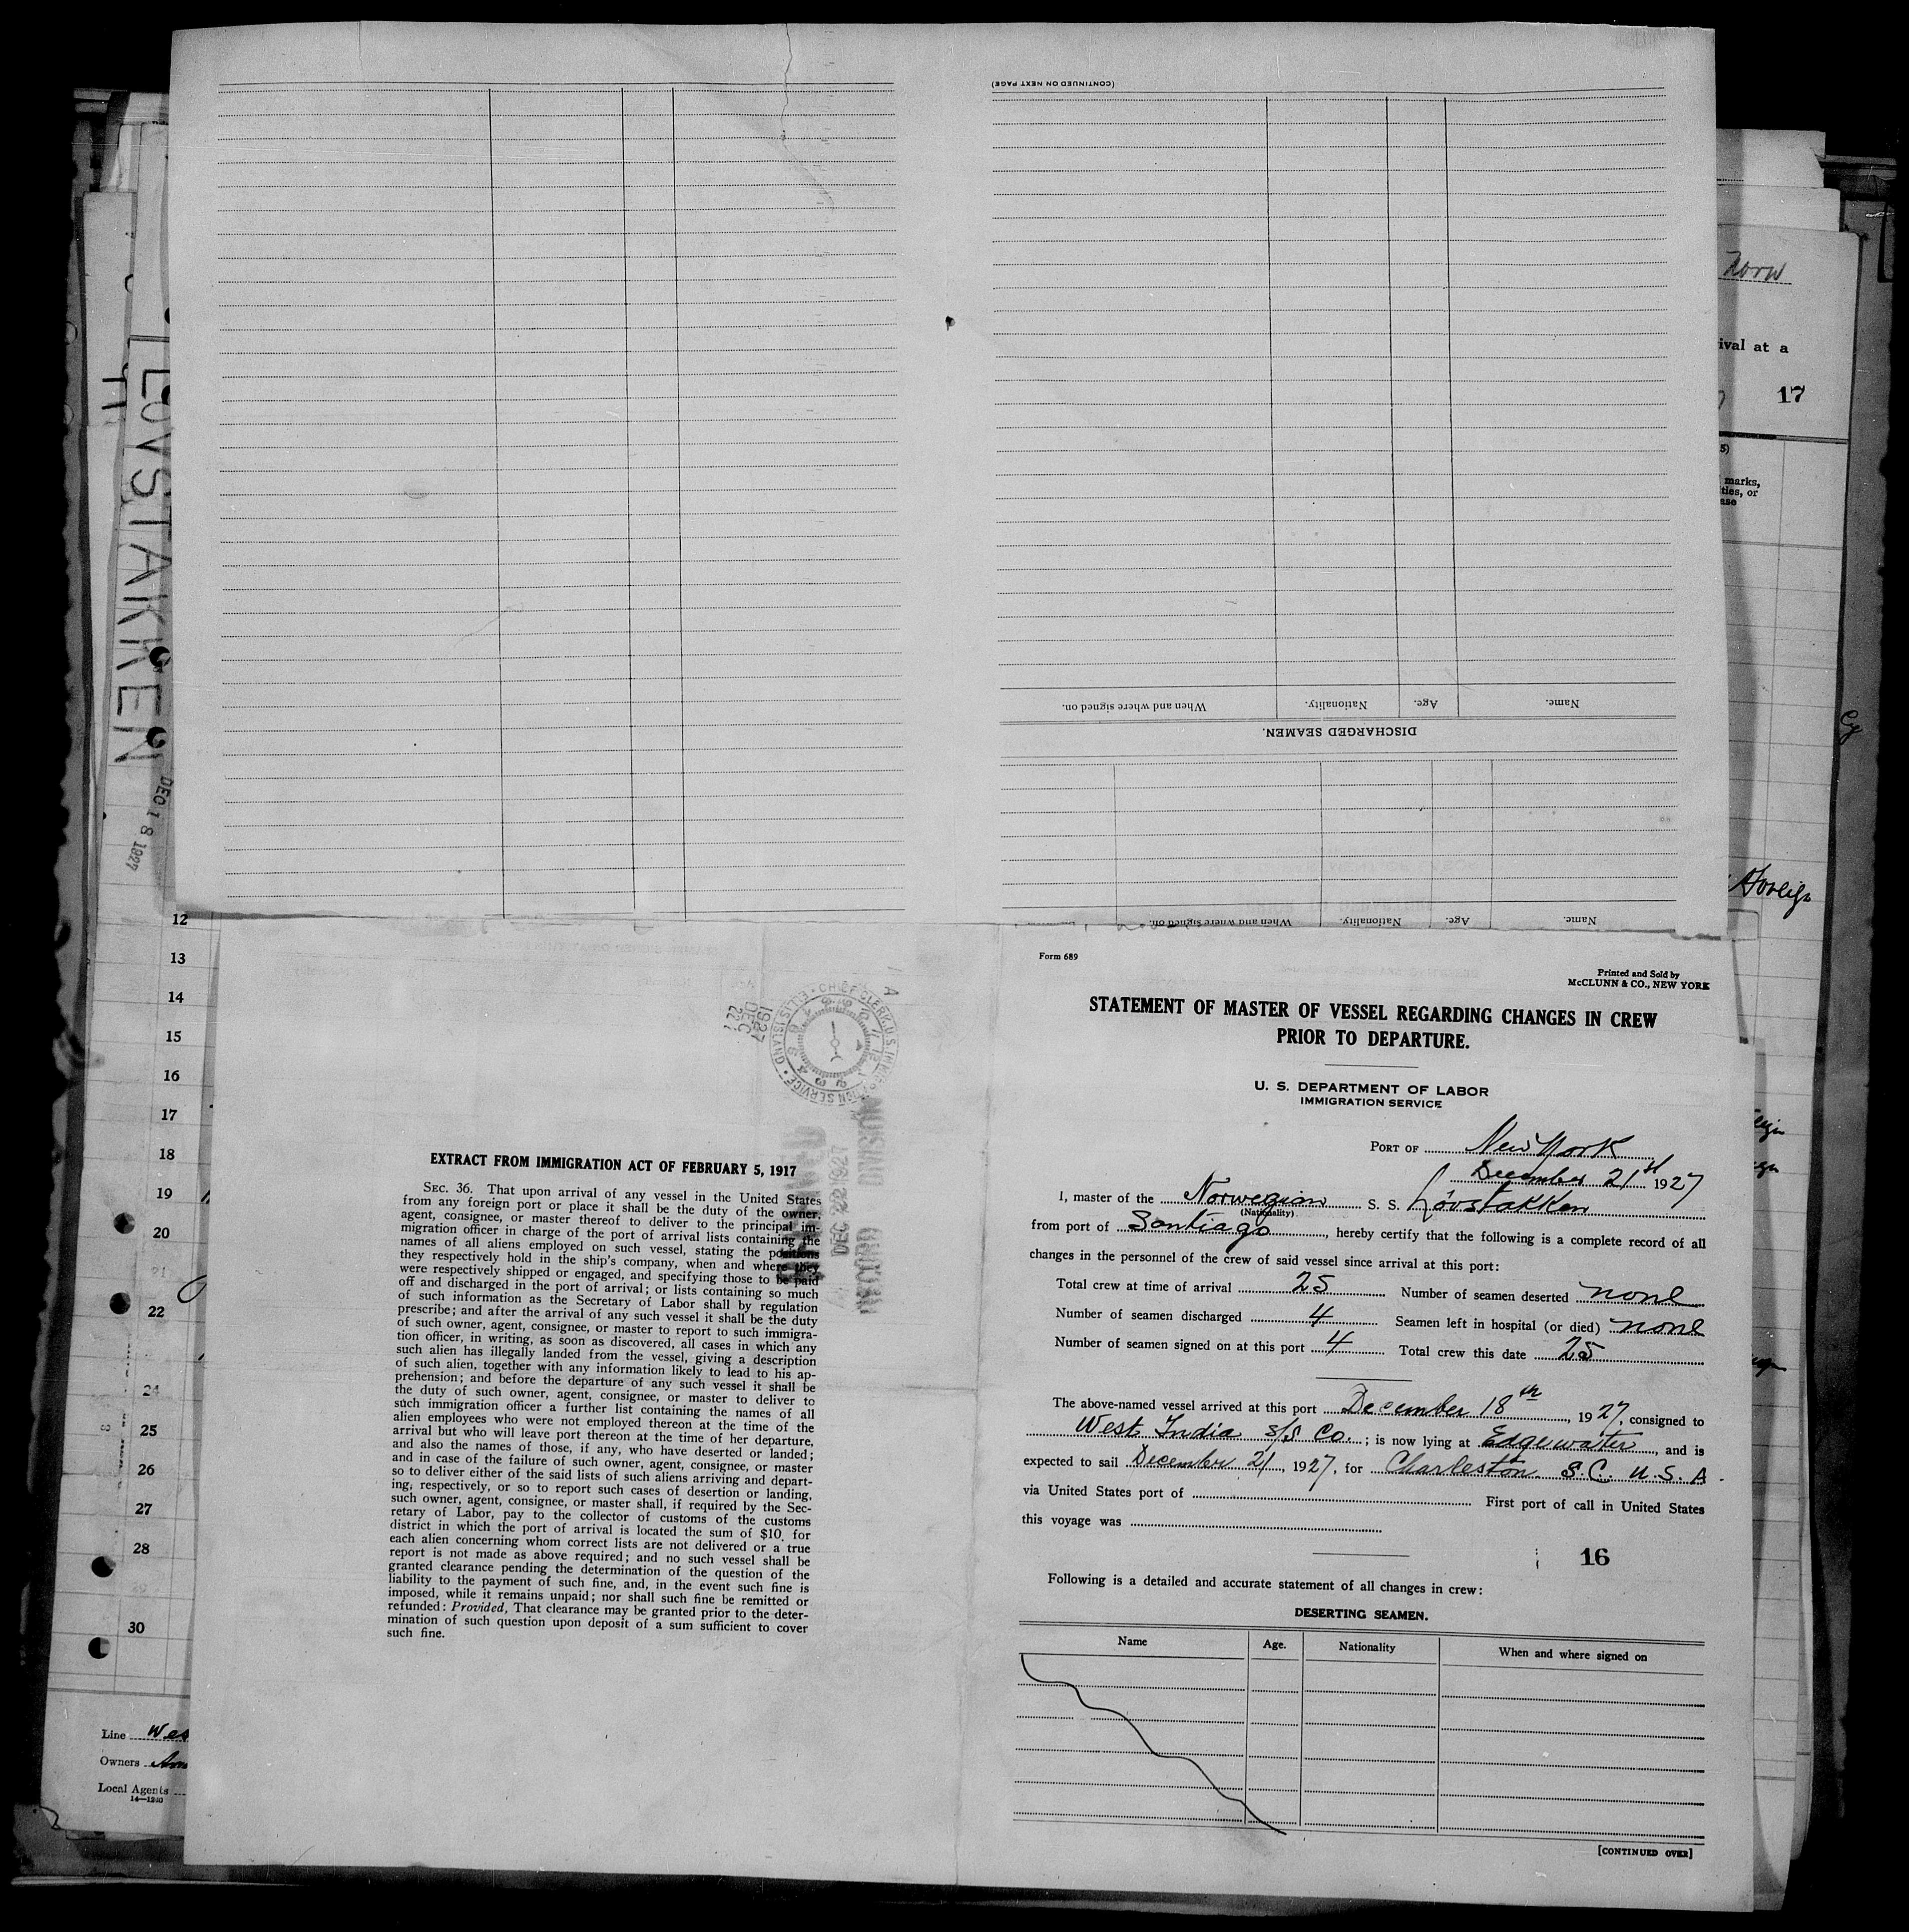 (CONTINUED ON NEXT PAGE)
When and where signed on. Nationality. Age. Name.
DISCHARGED SEAMEN.
When and where signed on. Nationality. Age. Name.
Norw
ival at a
17
5)
marks,
ties, or
ase
Foreign
LOVSTAKKEN
DEC 18 1927
12
13
14
15
16
17
18
19
20
21
22
24
25
26
27
28
29
30
Line Wes
Owners
Local Agents
14—1240
1927
DEC
22
CHIEF CLERK, U.S. IMMIGRATION SERVICE · ELLIS ISLAND ·
DEC 22 1927
RECORD DIVISION
EXTRACT FROM IMMIGRATION ACT OF FEBRUARY 5, 1917
SEC. 36. That upon arrival of any vessel in the United States
from any foreign port or place it shall be the duty of the owner,
agent, consignee, or master thereof to deliver to the principal im-
migration officer in charge of the port of arrival lists containing the
names of all aliens employed on such vessel, stating the positions
they respectively hold in the ship's company, when and where they
were respectively shipped or engaged, and specifying those to be paid
off and discharged in the port of arrival; or lists containing so much
of such information as the Secretary of Labor shall by regulation
prescribe; and after the arrival of any such vessel it shall be the duty
of such owner, agent, consignee, or master to report to such immigra-
tion officer, in writing, as soon as discovered, all cases in which any
such alien has illegally landed from the vessel, giving a description
of such alien, together with any information likely to lead to his ap-
prehension; and before the departure of any such vessel it shall be
the duty of such owner, agent, consignee, or master to deliver to
such immigration officer a further list containing the names of all
alien employees who were not employed thereon at the time of the
arrival but who will leave port thereon at the time of her departure,
and also the names of those, if any, who have deserted or landed;
and in case of the failure of such owner, agent, consignee, or master
so to deliver either of the said lists of such aliens arriving and depart-
ing, respectively, or so to report such cases of desertion or landing,
such owner, agent, consignee, or master shall, if required by the Sec-
retary of Labor, pay to the collector of customs of the customs
district in which the port of arrival is located the sum of $10 for
each alien concerning whom correct lists are not delivered or a true
report is not made as above required; and no such vessel shall be
granted clearance pending the determination of the question of the
liability to the payment of such fine, and, in the event such fine is
imposed, while it remains unpaid; nor shall such fine be remitted or
refunded: Provided, That clearance may be granted prior to the deter-
mination of such question upon deposit of a sum sufficient to cover
such fine.
Form 689
Printed and Sold by
McCLUNN & CO., NEW YORK
STATEMENT OF MASTER OF VESSEL REGARDING CHANGES IN CREW
PRIOR TO DEPARTURE.
U. S. DEPARTMENT OF LABOR
IMMIGRATION SERVICE
PORT OF New York
December 21st 1927
I, master of the Norwegian S. S. Lövstakken
(Nationality)
from port of Santiago, hereby certify that the following is a complete record of all
changes in the personnel of the crew of said vessel since arrival at this port:
Total crew at time of arrival 25 Number of seamen deserted none
Number of seamen discharged 4 Seamen left in hospital (or died) none
Number of seamen signed on at this port 4 Total crew this date 25
The above-named vessel arrived at this port December 18th, 1927, consigned to
West India S/S Co.; is now lying at Edgewater, and is
expected to sail December 21, 1927, for Charleston S.C. U.S.A.
via United States port of First port of call in United States
this voyage was
16
Following is a detailed and accurate statement of all changes in crew:
DESERTING SEAMEN.
Name Age. Nationality When and where signed on
[CONTINUED OVER]